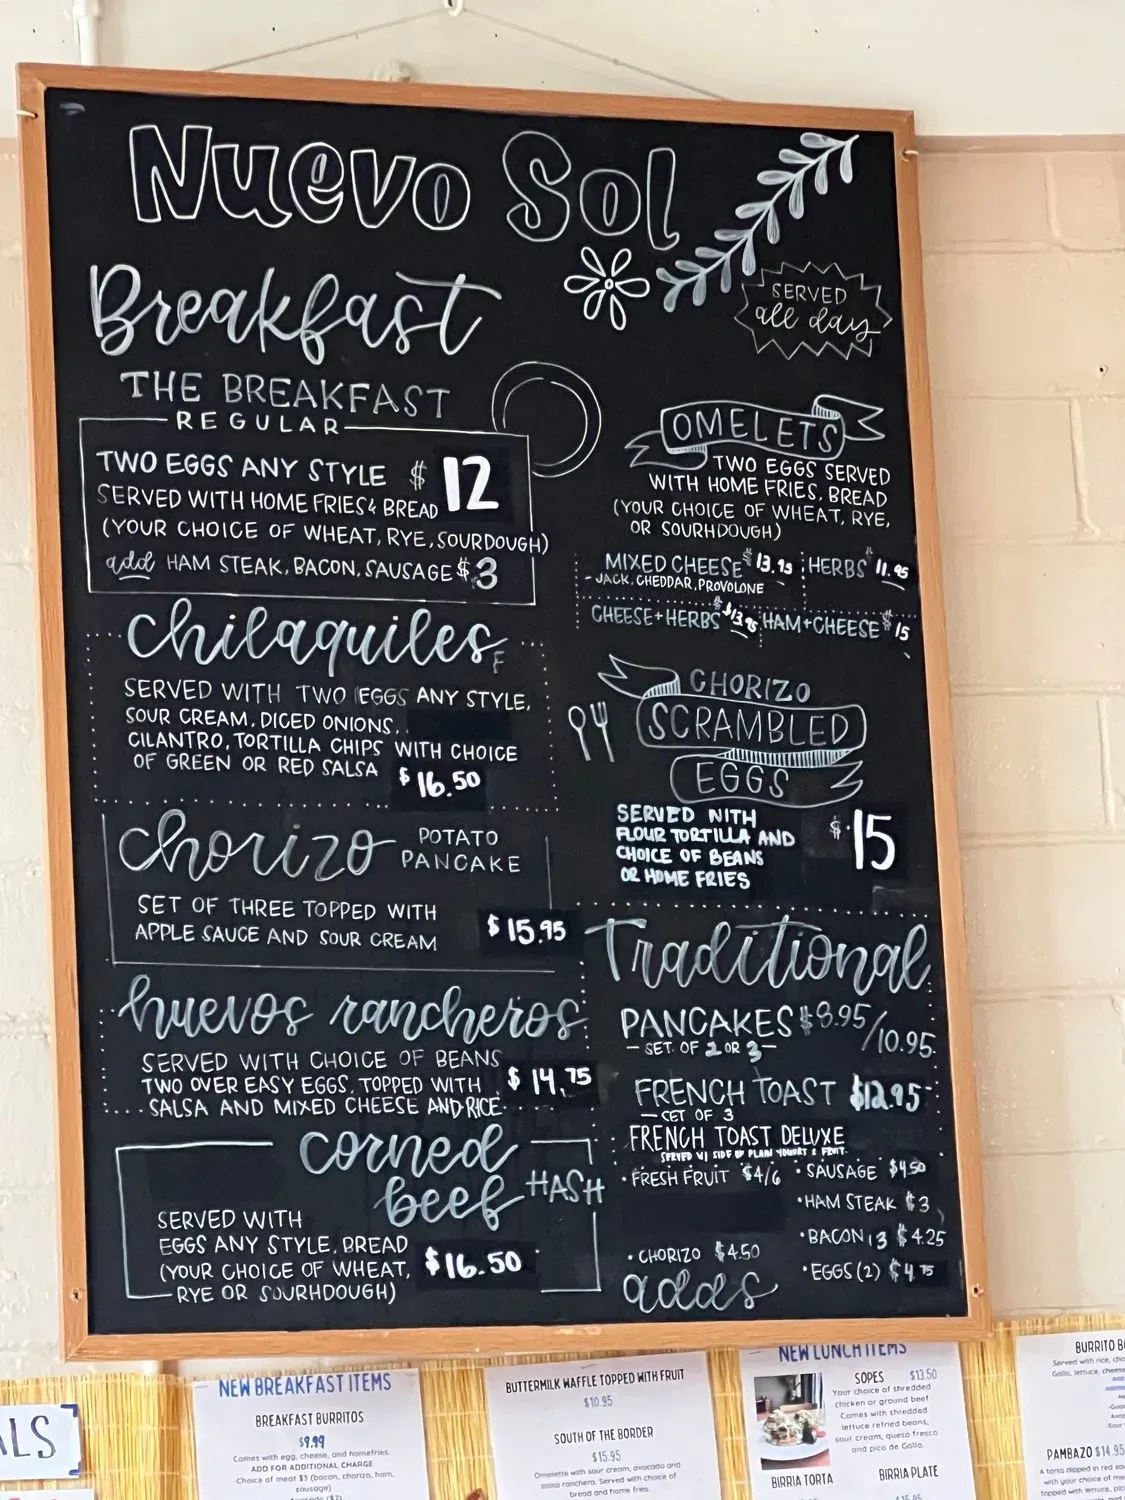 Nuevo Sol
Breakfast
SERVED
all day
THE BREAKFAST
REGULAR
TWO EGGS ANY STYLE $12
SERVED WITH HOME FRIES & BREAD
(YOUR CHOICE OF WHEAT, RYE, SOURDOUGH)
add HAM STEAK, BACON, SAUSAGE $3
chilaquiles
SERVED WITH TWO EGGS ANY STYLE,
SOUR CREAM, DICED ONIONS,
CILANTRO, TORTILLA CHIPS WITH CHOICE
OF GREEN OR RED SALSA
$16.50
chorizo POTATO
PANCAKE
SET OF THREE TOPPED WITH
APPLE SAUCE AND SOUR CREAM
$15.95
huevos rancheros
SERVED WITH CHOICE OF BEANS
TWO OVER EASY EGGS, TOPPED WITH
SALSA AND MIXED CHEESE AND RICE
$14.75
corned
beef HASH
SERVED WITH
EGGS ANY STYLE, BREAD
(YOUR CHOICE OF WHEAT,
RYE OR SOURHDOUGH)
$16.50
OMELETS
TWO EGGS SERVED
WITH HOME FRIES, BREAD
(YOUR CHOICE OF WHEAT, RYE,
OR SOURHDOUGH)
MIXED CHEESE $13.95 HERBS $11.95
- JACK, CHEDDAR, PROVOLONE
CHEESE + HERBS $13.95 HAM + CHEESE $15
CHORIZO
SCRAMBLED
EGGS
SERVED NITH
FLOUR TORTILLA AND
CHOICE OF BEANS
OR HOME FRIES
$15
Traditional
PANCAKES $8.95/10.95
- SET OF 2 OR 3 -
FRENCH TOAST $12.95
- SET OF 3
FRENCH TOAST DELUXE
SERVED W/ SIDE OF PLAIN YOGURT & FRUIT
• FRESH FRUIT $4/6
• SAUSAGE $4.50
• HAM STEAK $3
• BACON 3 $4.25
• CHORIZO $4.50
• EGGS (2) $4.75
adds
ALS
NEW BREAKFAST ITEMS
BREAKFAST BURRITOS
$9.99
Comes with egg, cheese, and homefries.
ADD FOR ADDITIONAL CHARGE
-Choice of meat $3 (bacon, chorizo, ham,
sausage)
BUTTERMILK WAFFLE TOPPED WITH FRUIT
$10.95
SOUTH OF THE BORDER
$15.95
Omelette with sour cream, avocado and
salsa ranchera. Served with choice of
bread and home fries.
NEW LUNCH ITEMS
SOPES $13.50
Your choice of shredded
chicken or ground beef
Comes with shredded
lettuce refried beans,
sour cream, queso fresco
and pico de Gallo.
BIRRIA TORTA
BIRRIA PLATE
BURRITO
Served with rice,
Gallo, lettuce,
PAMBAZO $14.95
A torta dipped in red
with your choice of
topped with lettuce,